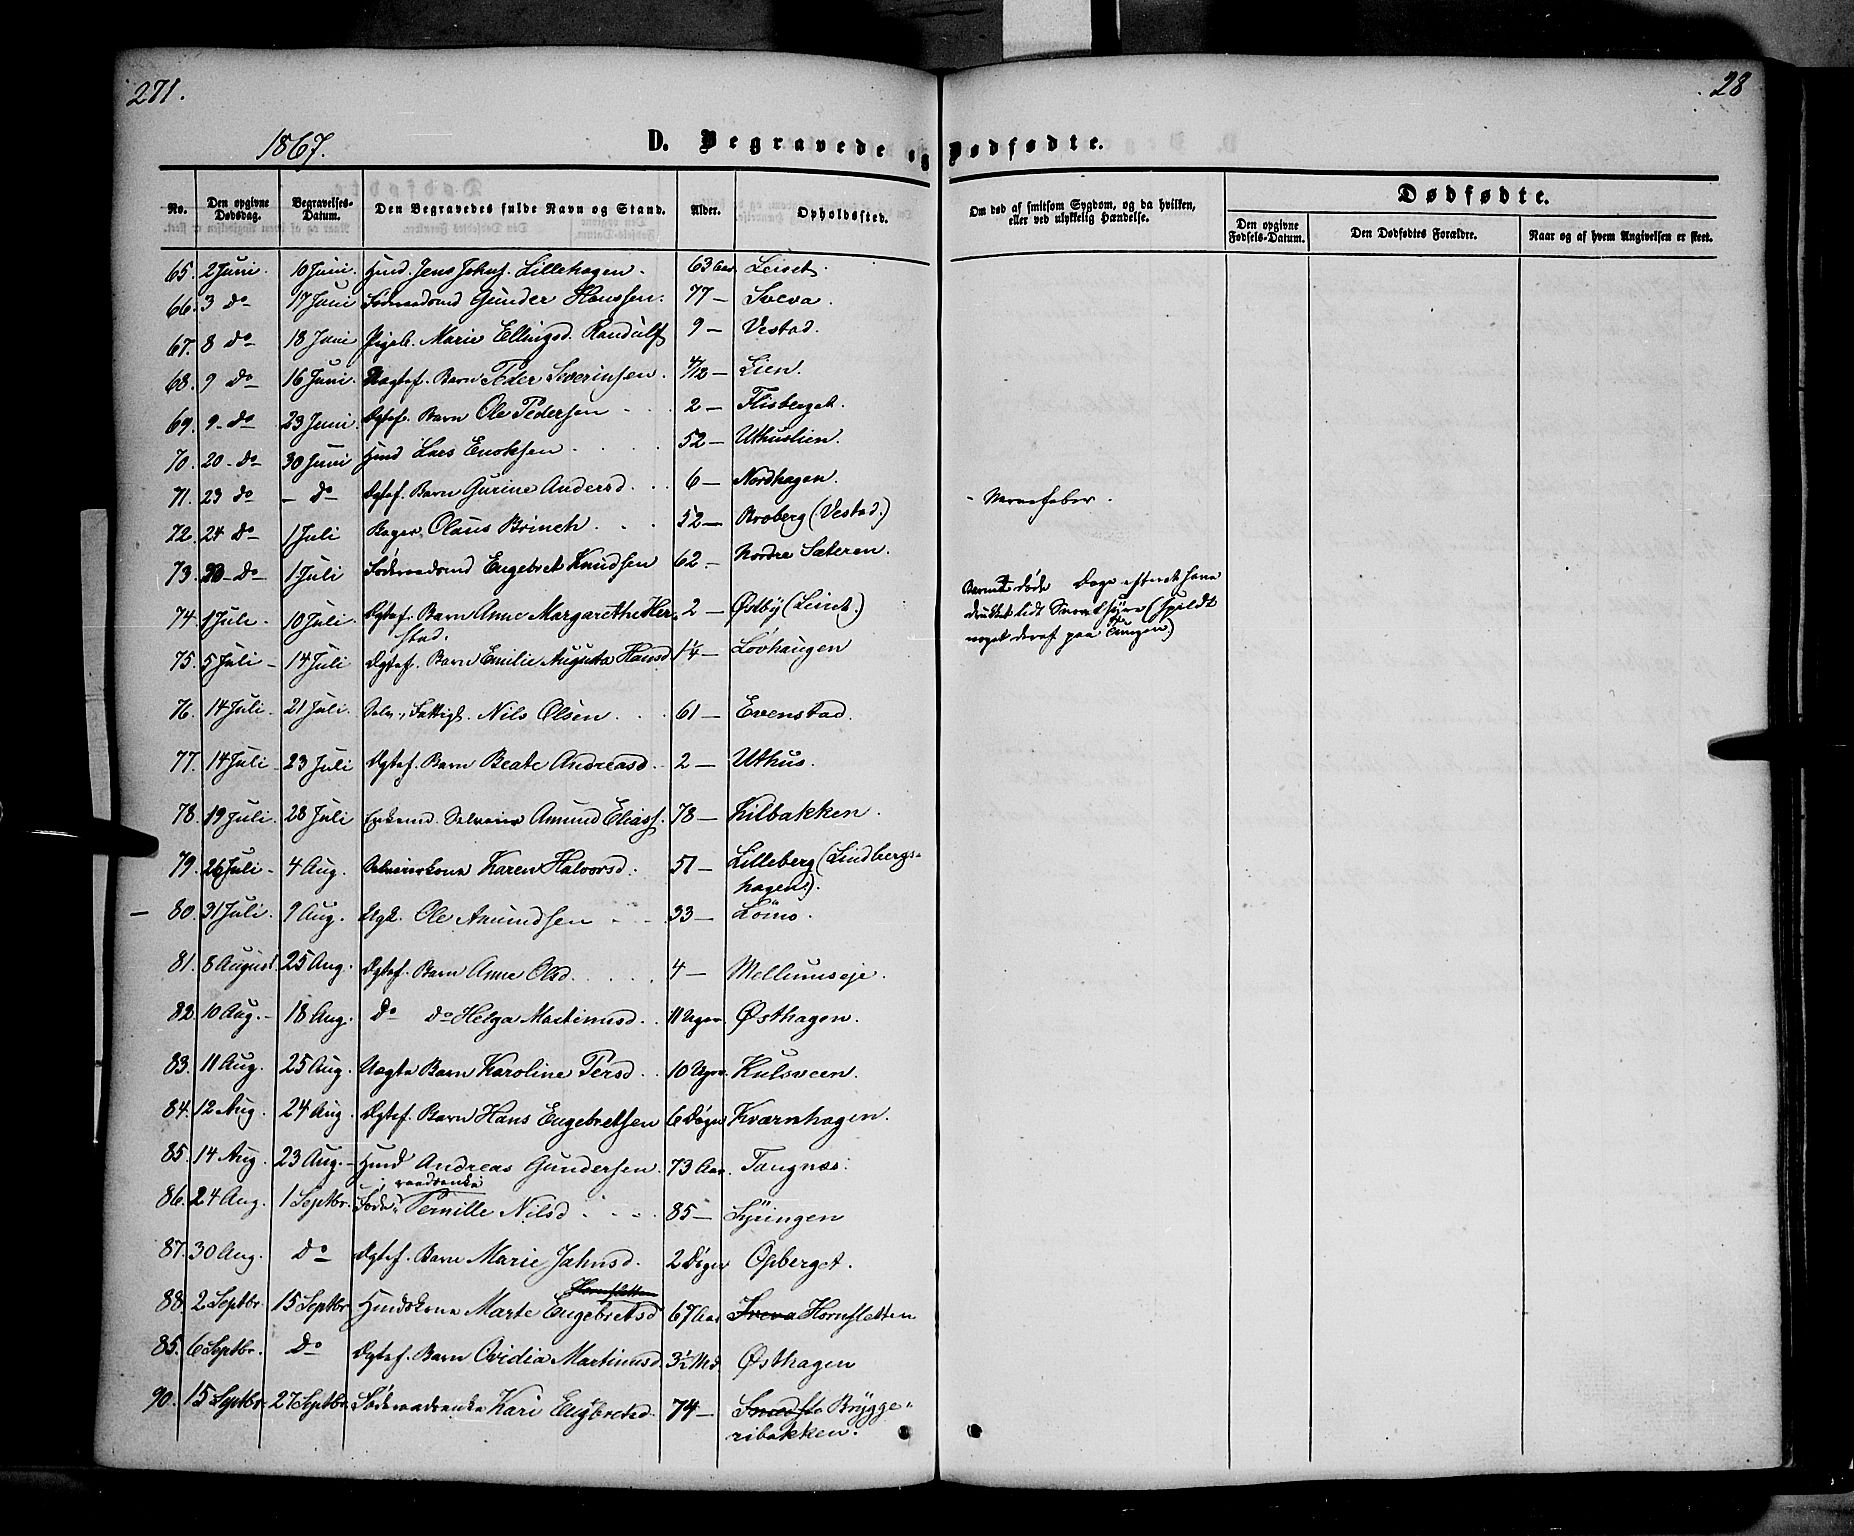 271.
28
1867.
D. Begravede og Dødfødte.
No.
Den opgivne Dødsdag.
Begravelses-Datum.
Den Begravedes fulde Navn og Stand.
Alder.
Opholdssted.
Om død af smitsom Sygdom, og da hvilken, eller ved ulykkelig Hændelse.
Dødfødte.
Den opgivne Fødsels-Datum.
Den Dødfødtes Forældre.
Naar og af hvem Angivelsen er skeet.
65. 2 Juni. 10 Juni. Huud. Jens Johns. Lillehagen. 63 Aar. Leiret.
66. 3 do 17 Juni Føderaadsmd Gunder Hanssen. 77 — Sveva.
67. 8 do 18 Juni Pigeb. Marie Ellingsd. Randulf 9 — Vestad.
68. 9 do 16 Juni. Uægtef. Barn Peder Severinsen. 4/12 — Lien.
69. 9 do 23 Juni Ægtef. Barn Ole Pedersen 2 — Flisberget.
70. 20 do 30 Juni Huud Lars Enoksen 52 — Uthuslien.
71. 23 do — do Ægtef. Barn Gurine Andersd. 6 — Nordhagen. - Nervefeber.
72. 24 do 1 Juli Bager, Olaus Brinch. 52 — Broberg (Vestad.)
73. do 1 Juli Føderaadsmd Engebret Knudsen 62 — Nordre Sæteren.
74. 1 Juli. 10 Juli. Ægtef. Barn Anne Margarethe Her- 2 — Østby (Leiret.) Barnet døde Dage efterat have
stad. drukket lidt (spildt
noget deraf paa Tungen)
75. 5 Juli 14 Juli Ægtef. Barn Emilie Augusta Hansd 1/4 — Lovhaugen
76. 14 Juli 21 Juli. Selv., Fattigl. Nils Olsen 61 — Evenstad.
77. 14 Juli 23 Juli Ægtef. Barn Beate Andreasd. 2 — Uthus.
78. 19 Juli. 28 Juli Enkemd. Selveier Amund Eliass. 78 — Kilbakken.
79. 26 Juli 4 Aug. Selveierkone Karen Halvorsd. 51 — Lilleberg (Lindbergs-
hagen).
— 80. 31 Juli. 9 Aug. Ugk. Ole Amundsen 33 — Lömo.
81. 8 August 25 Aug. Ægtef. Barn Anne Olsd. 4 — Mellumseje.
82. 10 Aug. 18 Aug. do do Helga Martinusd. 11 Uger. Østhagen.
83. 11 Aug. 25 Aug. Uægte Barn Karoline Persd. 10 Uger. Kulsveen.
84. 12 Aug. 24 Aug. Ægtef. Barn Hans Engebretsen 6 Døgn Kværnhagen.
85. 14 Aug. 23 Aug. Huud Andreas Gundersen. 73 Aar. Tangnæs.
86. 24 Aug. 1 Septbr. Føde- raadsenke Pernille Nilsd 85 — Lyringen
87. 30 Aug. Do Ægtef. Barn Marie Jahnsd. 2 Døgn Opberget.
88. 2 Septbr. 15 Septbr. Huudskone Marte Engebretsd Hornsletten 67 Aar Sveva Hornsletten
85. 6 Septbr. Do Ægtef. Barn Ovidia Martinusd. 3½ Md. Østhagen
90. 15 Septbr. 27 Septbr. Føderaadsenke Kari Engbretsd. 74 — Brygge-
ribakken.